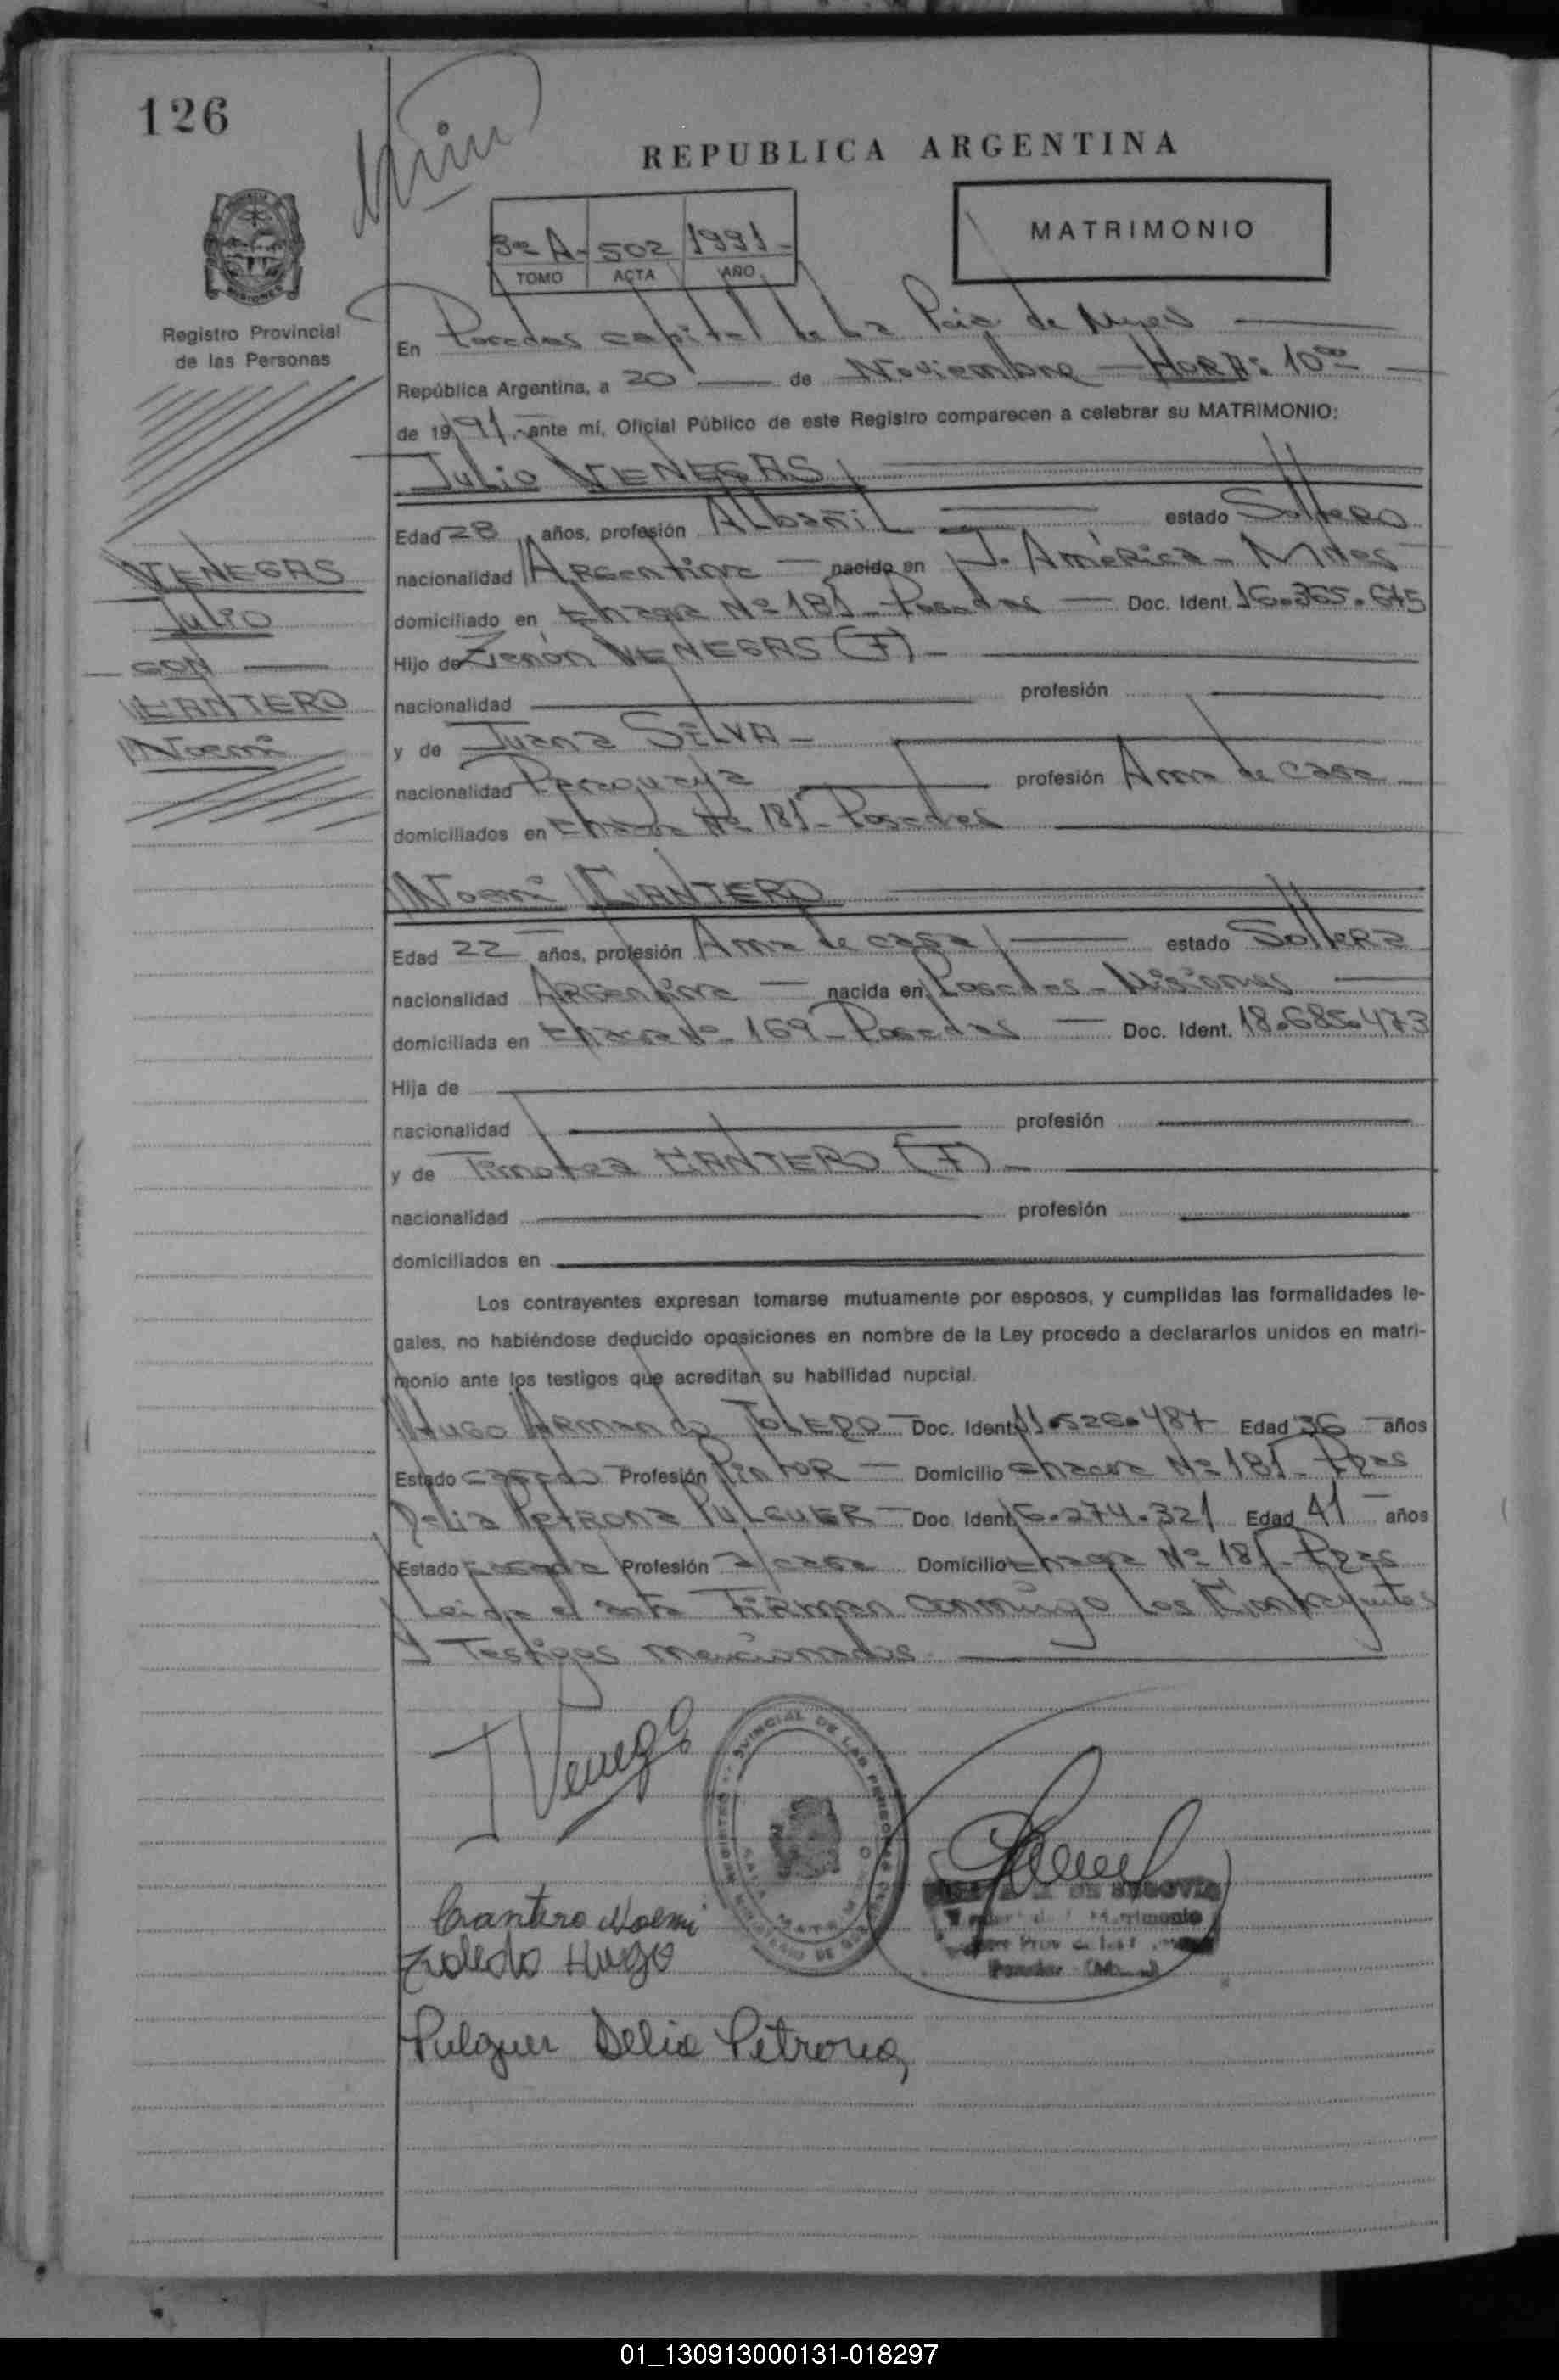 126
REPUBLICA ARGENTINA
MATRIMONIO
3º A- 502 1991-
TOMO ACTA AÑO
Registro Provincial
de las Personas
En Posadas capital de La Pcia de Mnes
República Argentina, a 20 de Noviembre - HORA: 10⁰⁰
de 1991.- ante mí, Oficial Público de este Registro comparecen a celebrar su MATRIMONIO:
Julio VENEGAS
Edad 28 años, profesión Albañil estado Soltero
nacionalidad Argentina nacido en J. América - Mnes
domiciliado en Chacra Nº 181 - Posadas Doc. Ident. 16.365.645
Hijo de Zenón VENEGAS (F) -
nacionalidad profesión
y de Juana SILVA -
nacionalidad Paraguaya profesión Ama de casa
domiciliados en Chacra Nº 181 - Posadas
VENEGAS
Julio
CON
CANTERO
Noemi
Noemi CANTERO
Edad 22 años, profesión Ama de casa estado Soltera
nacionalidad Argentina nacida en Posadas - Misiones
domiciliada en Chacra Nº 169 - Posadas Doc. Ident. 18.685.473
Hija de
nacionalidad profesión
y de Timotea CANTERO (F) -
nacionalidad profesión
domiciliados en
Los contrayentes expresan tomarse mutuamente por esposos, y cumplidas las formalidades le-
gales, no habiéndose deducido oposiciones en nombre de la Ley procedo a declararlos unidos en matri-
monio ante los testigos que acreditan su habilidad nupcial.
Hugo Armando TOLEDO - Doc. Ident. 11.526.487 Edad 36 años
Estado casado Profesión Pintor Domicilio Chacra Nº 181 - Pdas
Delia Petrona PULGUER - Doc. Ident. 6.274.321 Edad 41 años
Estado casada Profesión a/casa Domicilio Chacra Nº 181 - Pdas
Leida el acta Firman conmigo los Contrayentes
y Testigos mencionados
J Venegas
Cantero Noemi
Toledo Hugo
DE SEGOVIA
Matrimonio
Posadas
Pulguer Delia Petrona
01_130913000131-018297